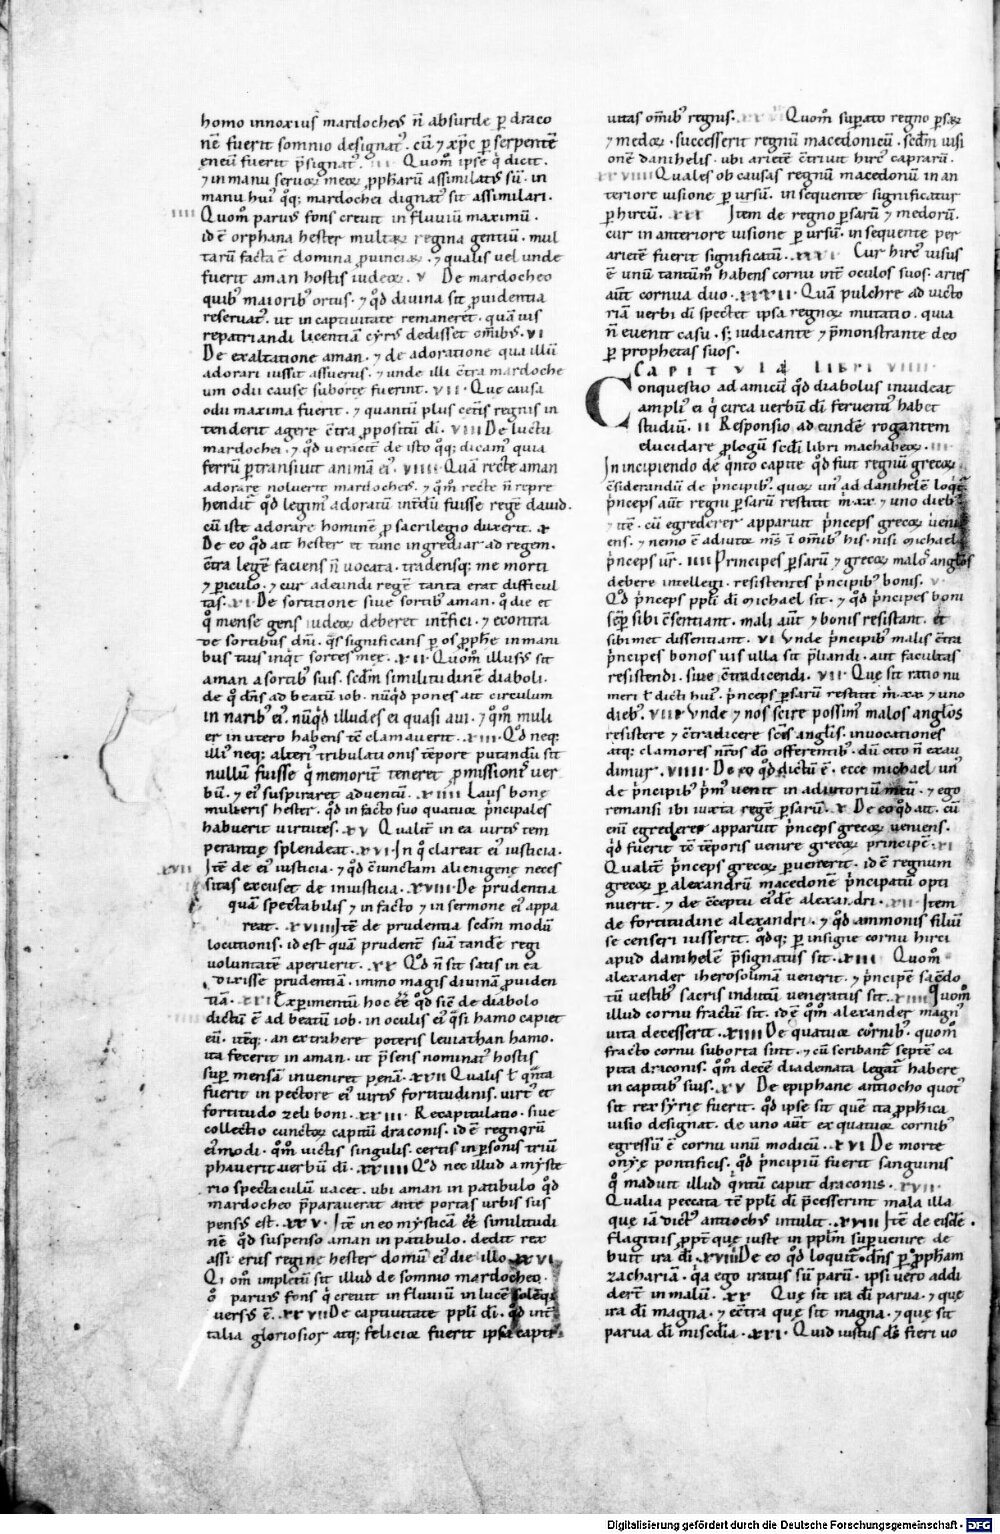 homo innoxius mardocheus n̄ absurde ꝑ draco
nē fuerit somnio designat᷒. cū ⁊ xp̄c ꝑ serpentē
eneū fuerit p̄signat᷒. III Quom̄ ipse q̇ dicit.
⁊ in manu seruoꝝ meoꝝ ꝓph̄arū assimilat᷒ sū. in
manu hui᷒ qͦꝫ mardochei dignat᷒ sit assimilari.
IIII Quom̄ paruus fons creuit in fluuiū maximū.
id ē orphana hester multaꝝ regina gentiū. mul
tarū facta ē domina ꝓuinciaꝝ. ⁊ qualis uel unde
fuerit aman hostis iudeoꝝ. V De mardocheo
quib᷒ maiorib᷒ ortus. ⁊ qͦd diuina sit ꝓuidentia
reseruat᷒. ut in captiuitate remaneret. quāuis
repatriandi licentiā cyrus dedisset om̄ib᷒. VI
De exaltatione aman. ⁊ de adoratione qua illū
adorari iussit assuerus. ⁊ unde illi c̄tra mardoche
um odii cause suborte fuerint. VII. Que causa
odii maxima fuerit. ⁊ quantū plus cet̄is regnis in
tenderit agere c̄tra ꝓpositū dī. VIII De luctu
mardochei. ⁊ qͦd ueracit̄ de isto qͦꝫ dicam᷒ quia
ferrū ꝑtransiuit animā ei᷒. VIIII. Quā recte aman
adorare noluerit mardocheus. ⁊ qͦm̄ recte n̄ repre
hendit᷒ qͦd legim᷒ adoratū int̄dū fuisse regē dauid.
cū iste adorare hominē ꝓ sacrilegio duxerit. X
De eo qͦd ait hester et tunc ingrediar ad regem.
c̄tra legē faciens n̄ uocata. tradensqꝫ me morti
⁊ ꝑiculo. ⁊ cur adeundi regē tanta erat difficul
tas. XI. De sortitione siue sortib᷒ aman. qͦ die et
qͦ mense gens iudeoꝝ deberet int̄fici. ⁊ econtra
de sortibus dn̄i. qͣs significans ꝑ os ꝓph̄e in mani
bus tuis inqͥt sortes mee. XII. Quom̄ illus᷒ sit
aman a sortib᷒ suis. scdm̄ similitudinē diaboli.
de qͦ dn̄s ad beatū iob. nūqͥd pones ait circulum
in narib᷒ ei᷒. nūqͥd illudes ei quasi aui. ⁊ qͦm̄ muli
er in utero habens tē clamauerit. XIII. Qͦd neqꝫ
illi᷒ neqꝫ alteri᷒ tribulationis tēpore putandū sit
nullū fuisse qͥ memorit̄ teneret ꝓmissionē uer
bū. ⁊ ei᷒ suspiraret aduentū. XIIII Laus bone
mulieris hester. qͦd in facto suo quatuoꝝ p̄ncipales
habuerit uirtutes. XV Qualit̄ in ea uirt᷒ tem
perantie splendeat. XVI. In qͦ clareat ei᷒ iusticia.
XVII Itē de ei᷒ iusticia. ⁊ qͦd c̄iunctam alienigene neces
sitas excuset de iniusticia. XVIII. De prudentia
quā spectabilis ⁊ in facto ⁊ in sermone ei᷒ appa
reat. XVIIII Itē de prudentia scdm̄ modū
locutionis. id est quā prudent̄ suā tandē regi
uoluntatē aperuerit. XX Qͦd n̄ sit satis in ea
dixisse prudentiam. immo magis diuinā ꝓuiden
tiā. XXI Experimentū hoc ēē qͦd sic de diabolo
dictū ē ad beatū iob. in oculis ei᷒ qͣsi hamo capiet
eū. itēqꝫ. an extrahere poteris leuiathan hamo.
ita fecerit in aman. ut p̄sens nominat᷒ hostis
suꝑ mensā inueniret penā. XXII Qualis ł qͣnta
fuerit in pectore ei᷒ uirt᷒ fortitudinis. uirt᷒ et
fortitudo zeli boni. XXIII. Recapitulatio. siue
collectio cunctoꝝ capitū draconis. id ē regnorū
ei᷒modi. qͦm̄ uictis singulis. certis in ꝑsonis triū
phauerit uerbū dī. XXIIII Qͦd nec illud a myste
rio spectaculū uacet. ubi aman in patibulo qͦd
mardocheo p̄parauerat ante portas urbis sus
pensus est. XXV. Itē in eo mysticā ēē similitudi
nē qͦd suspenso aman in patibulo. dedit rex
assuerus regine hester domū ei᷒ die illo. XXVI
Quom̄ impletū sit illud de somnio mardochei.
qͦ paruus fons qͥ creuit in fluuiū in lucē solēqꝫ
uersus ē. XXVII De captiuitate ppli dī. qͦd int̄
talia gloriosior atqꝫ felicior fuerit ipsa capti
uitas om̄ib᷒ regnis. XXVIII Quom̄ suꝑato regno ꝑsaꝝ
⁊ medoꝝ. successerit regnū macedonicū. scdm̄ uisi
onē danihelis. ubi arietē c̄triuit hirc᷒ caprarū.
XXVIIII Quales ob causas regnū macedonū in an
teriore uisione ꝑ ursū. in sequente significatur
ꝑ hircū. XXX Item de regno ꝑsarū ⁊ medorū.
cur in anteriore uisione ꝑ ursū. in sequente per
arietē fuerit significatū. XXXI Cur hirc᷒ uisus
ē unū tantūm̄ habens cornu int̄ oculos suos. aries
aūt cornua duo. XXXII. Quā pulchre ad uicto
riā uerbi dī spectet ipsa regnoꝝ mutatio. quia
n̄ euenit casu. sꝫ iudicante ⁊ p̄monstrante deo
ꝑ prophetas suos.
CAPITVLA LIBRI VIIII.
Conquestio ad amicū qͦd diabolus inuideat
ampli᷒ ei qͥ circa uerbū dī feruenti᷒ habet
studiū. II Responsio ad eundē rogantem
elucidare ꝓlogū scdī libri machabeoꝝ. III
In incipiendo de qͥnto capite qͦd fuit regnū grecoꝝ
c̄siderandū de p̄ncipib᷒. quoꝝ un᷒ ad danihelē loqͥt᷒
p̄nceps aūt regni ꝑsarū restitit m̊ XX. ⁊ uno dieb᷒
⁊ itē. cū egrederer apparuit p̄nceps grecoꝝ ueni
ens. ⁊ nemo ē adiutor m̄s ī om̄ib᷒ his. nisi michael
p̄nceps ur̄. IIII Principes ꝑsarū ⁊ grecoꝝ malos angl̄os
debere intellegi. resistentes p̄ncipib᷒ bonis. V
Qͦd p̄nceps ppli dī michael sit. ⁊ qͦd p̄ncipes boni
sēꝑ sibi c̄sentiant. mali aūt ⁊ bonis resistant. et
sibimet dissentiant. VI Vnde p̄ncipib᷒ malis c̄tra
p̄ncipes bonos uis ulla sit p̄liandi. aut facultas
resistendi. siue c̄tradicendi. VII. Que sit ratio nu
meri ł dicti hui᷒. p̄nceps ꝑsarū restitit m̊ XX ⁊ uno
dieb᷒. VIII. Vnde ⁊ nos scire possim᷒ malos angl̄os
resistere ⁊ c̄tradicere sc̄is angl̄is. inuocationes
atqꝫ clamores nr̄os dō offerentib᷒. dū cito n̄ exau
dimur. VIIII. De eo qͦd dictū ē. ecce michael un᷒
de p̄ncipib᷒ p̄m᷒ uenit in adiutoriū meū. ⁊ ego
remansi ibi iuxta regē ꝑsarū. X De eo qͦd ait. cū
enī egrederer apparuit p̄nceps grecoꝝ ueniens.
qͦd fuerit tē tēporis uenire grecoꝝ principē. XI
Qualit̄ p̄nceps grecoꝝ ꝑuenerit. id ē regnum
grecoꝝ ꝑ alexandrū macedonē p̄ncipatū opti
nuerit. ⁊ de c̄ceptu ei᷒dē alexandri. XII Item
de fortitudine alexandri. ⁊ qͦd ammonis filiū
se censeri iusserit. qͦdqꝫ ꝑ insigne cornu hirci
apud danihelē p̄signatus sit. XIII Quom̄
alexander iherosolimā uenerit. ⁊ p̄ncipē sac̄do
tū uestib᷒ sacris indutū ueneratus sit. XIIII Quom̄
illud cornu fractū sit. id ē qͦm̄ alexander magn᷒
uita decesserit. XIIII De quatuor cornib᷒. quom̄
fracto cornu suborta sint. ⁊ cū scribant᷒ septē ca
pita draconis. qͦm̄ decē diademata legat᷒ habere
in capitib᷒ suis. XV De epiphane antiocho quot᷒
sit rex syrie fuerit. qͦd ipse sit quē ita ꝓph̄ica
uisio designat. de uno aūt ex quatuor cornib᷒
egressū ē cornu unū modicū. XVI De morte
onye pontificis. qͦd p̄ncipiū fuerit sanguinis
qͦ maduit illud qͥntū caput draconis. XVII.
Qualia peccata tē ppli dī p̄cesserint mala illa
que iā dict᷒ antiochus intulit. XVIII Itē de eisdē
flagitiis ꝓpt̄ que iuste in pplm̄ suꝑuenire de
buit ira dī. XVIIII De eo qͦd loquit᷒ dn̄s ꝑ ꝓph̄am
zachariā. qͣa ego iratus sū parū. ipsi uero addi
derūt in malū. XX Que sit ira dī parua. ⁊ que
ira dī magna. ⁊ ec̄tra que sit magna. ⁊ que sit
parua dī mis̄cdia. XXI. Quid iustus ds̄ fieri uo
Digitalisierung gefördert durch die Deutsche Forschungsgemeinschaft - DFG